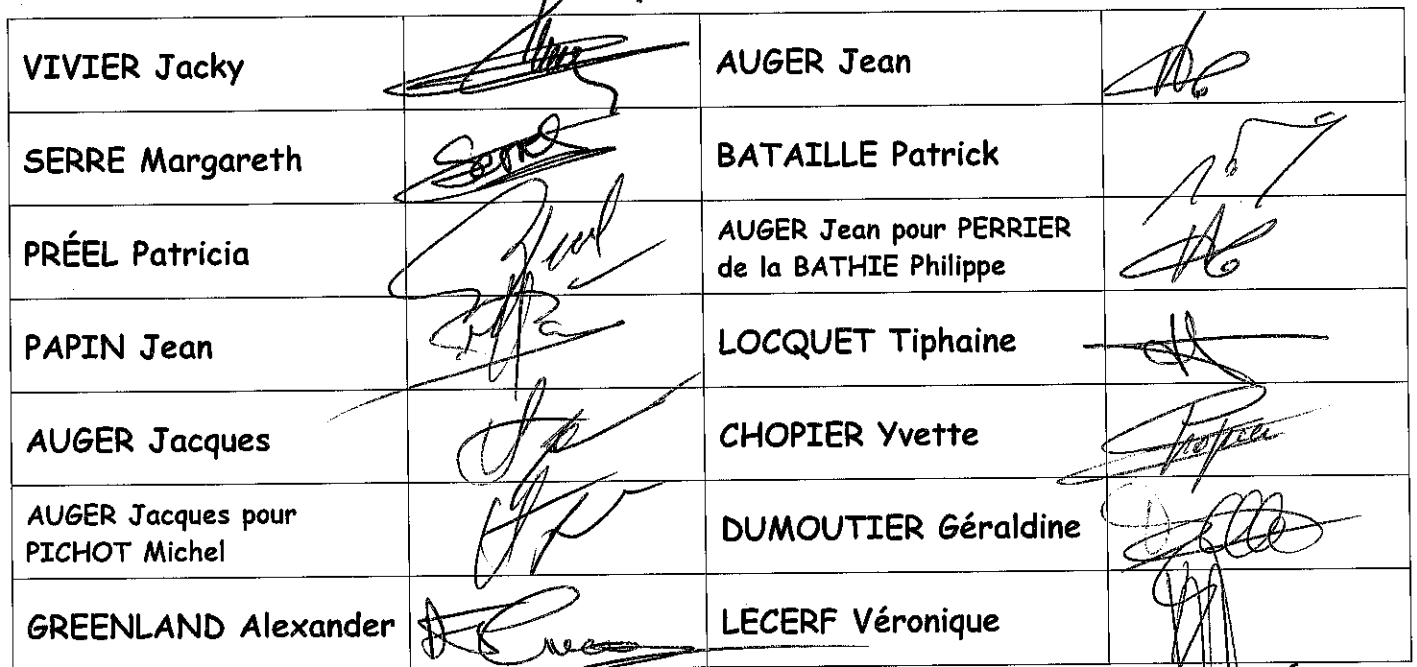 VIVIER Jacky
AUGER Jean
SERRE Margareth
Serre
BATAILLE Patrick
PRÉEL Patricia
AUGER Jean pour PERRIER
de la BATHIE Philippe
PAPIN Jean
LOCQUET Tiphaine
AUGER Jacques
CHOPIER Yvette
Chopier
AUGER Jacques pour
PICHOT Michel
DUMOUTIER Géraldine
GREENLAND Alexander
LECERF Véronique